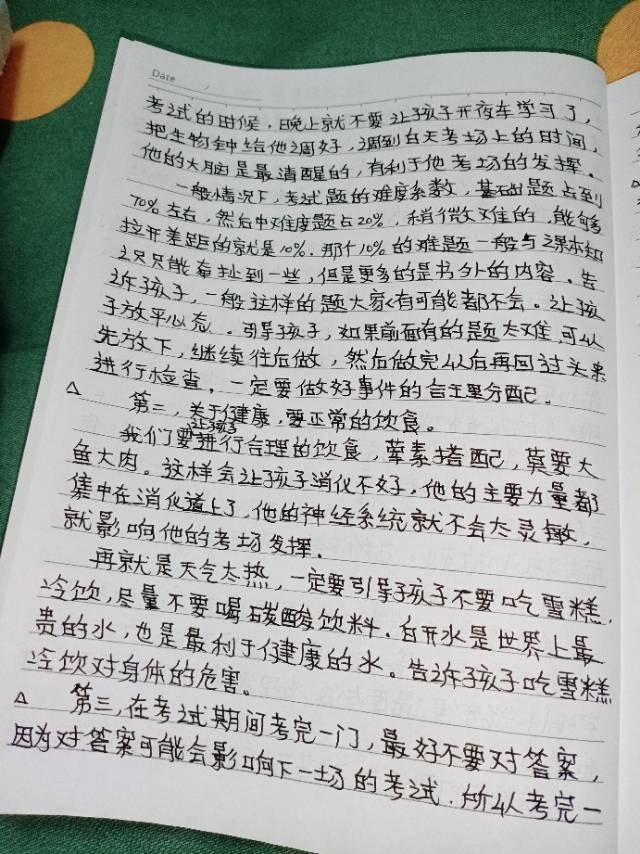 Date /
考试的时候，晚上就不要让孩子开夜车学习了，
把生物钟给他调好，调到白天考场上的时间，
他的大脑是最清醒的，有利于他考场的发挥。
一般情况下，考试题的难度系数，基础题占到
70%左右，然后中难度题占20%，稍微难的，能够
拉开差距的就是10%。那个10%的难题一般与课本知
识只能牵扯到一些，但是更多的是书外的内容。告
诉孩子，一般这样的题大家有可能都不会。让孩
子放平心态。引导孩子，如果前面有的题太难，可以
先放下，继续往后做，然后做完以后再回过头来
进行检查。一定要做好事件的合理分配。
△ 第二，关于健康，要正常的饮食。
我们要让孩子进行合理的饮食，荤素搭配，莫要大
鱼大肉。这样会让孩子消化不好，他的主要力量都
集中在消化道上了，他的神经系统就不会太灵敏，
就影响他的考场发挥。
再就是天气太热，一定要引导孩子不要吃雪糕，
冷饮，尽量不要喝碳酸饮料。白开水是世界上最
贵的水，也是最利于健康的水。告诉孩子吃雪糕
冷饮对身体的危害。
△ 第三，在考试期间考完一门，最好不要对答案，
因为对答案可能会影响下一场的考试。所以考完一